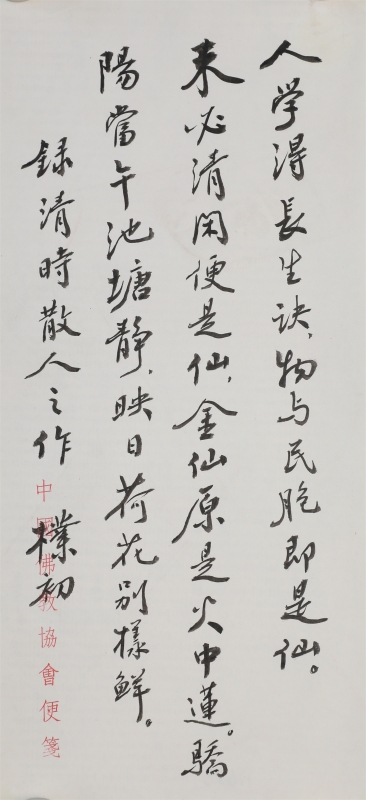 人学得長生訣，物与民胞即是仙。
未必清閑便是仙，金仙原是火中蓮。驕
陽當午池塘静，映日荷花别樣鮮。
録清時散人之作
樸初
中國佛教協會便箋